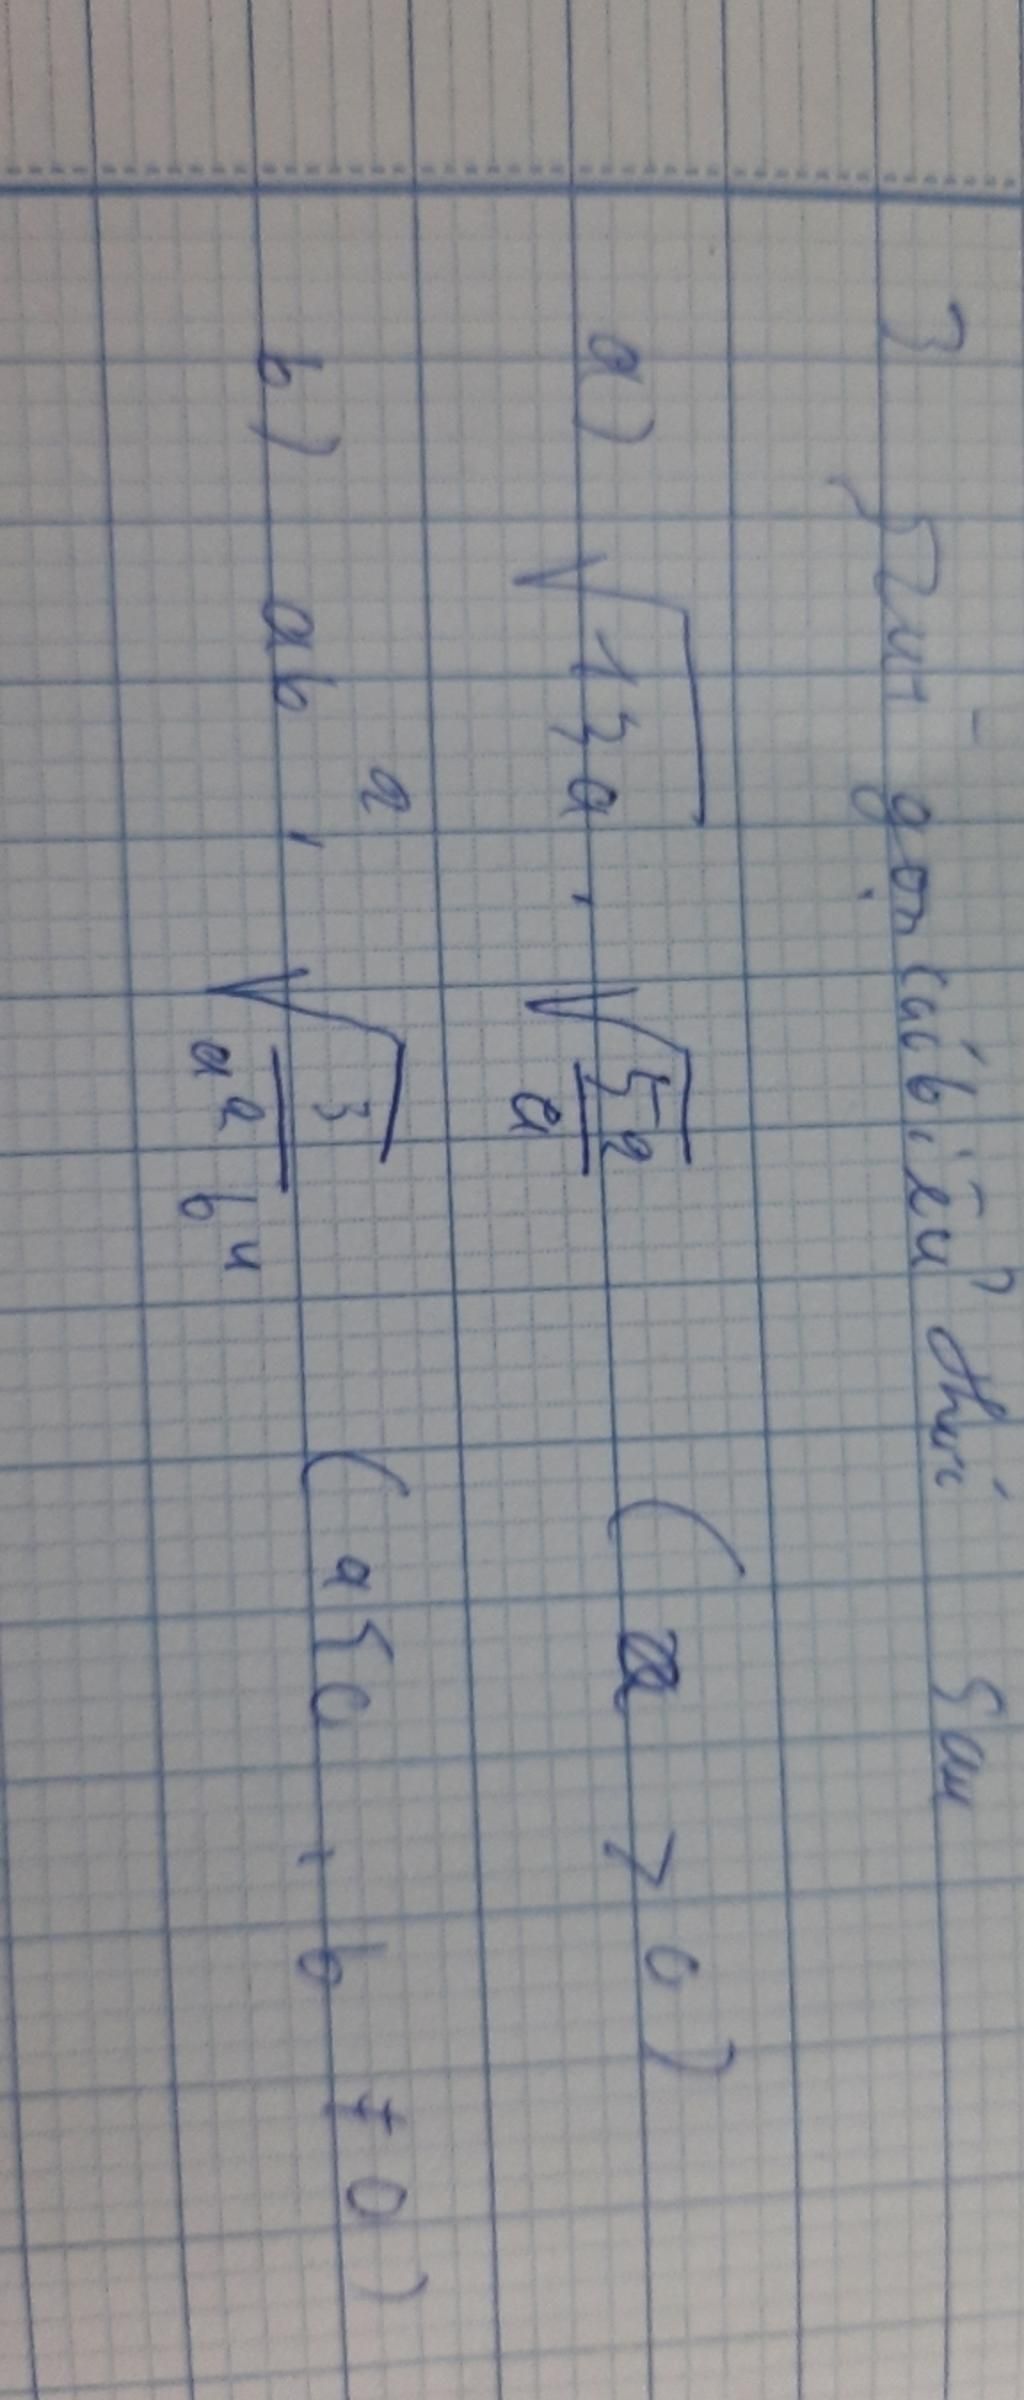 3 Rút gọn các biểu thức sau
a) √13a . √(52/a) (a > 0)
b) ab² . √(3/(a²b⁴)) (a<0, b ≠ 0)